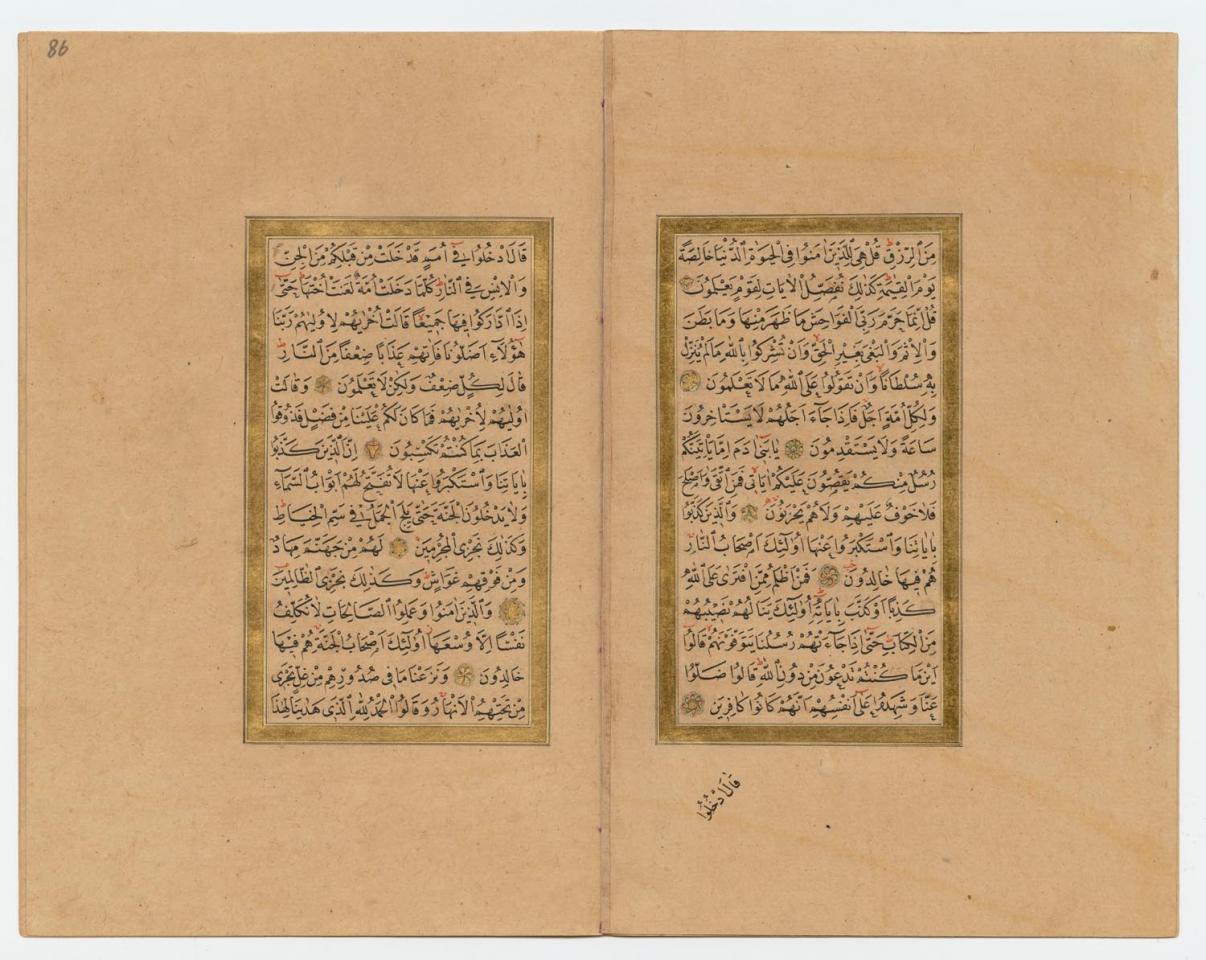 مِنَ الرِّزْقِ قُلْ هِىَ لِلَّذِينَ اٰمَنُوا فِى الْحَيٰوةِ الدُّنْيَا خَالِصَةً
يَوْمَ الْقِيٰمَةِ كَذٰلِكَ نُفَصِّلُ الْاٰيَاتِ لِقَوْمٍ يَعْلَمُونَ
قُلْ اِنَّمَا حَرَّمَ رَبِّىَ الْفَوَاحِشَ مَا ظَهَرَ مِنْهَا وَمَا بَطَنَ
وَالْاِثْمَ وَالْبَغْىَ بِغَيْرِ الْحَقِّ وَاَنْ تُشْرِكُوا بِاللّٰهِ مَا لَمْ يُنَزِّلْ
بِهٖ سُلْطَانًا وَاَنْ تَقُولُوا عَلَى اللّٰهِ مَا لَا تَعْلَمُونَ
وَلِكُلِّ اُمَّةٍ اَجَلٌ فَاِذَا جَاءَ اَجَلُهُمْ لَا يَسْتَاْخِرُونَ
سَاعَةً وَلَا يَسْتَقْدِمُونَ يَا بَنِى اٰدَمَ اِمَّا يَاْتِيَنَّكُمْ
رُسُلٌ مِنْكُمْ يَقُصُّونَ عَلَيْكُمْ اٰيَاتِى فَمَنِ اتَّقٰى وَاَصْلَحَ
فَلَا خَوْفٌ عَلَيْهِمْ وَلَا هُمْ يَحْزَنُونَ وَالَّذِينَ كَذَّبُوا
بِاٰيَاتِنَا وَاسْتَكْبَرُوا عَنْهَا اُولٰئِكَ اَصْحَابُ النَّارِ
هُمْ فِيهَا خَالِدُونَ فَمَنْ اَظْلَمُ مِمَّنِ افْتَرٰى عَلَى اللّٰهِ
كَذِبًا اَوْ كَذَّبَ بِاٰيَاتِهٖ اُولٰئِكَ يَنَالُهُمْ نَصِيبُهُمْ
مِنَ الْكِتَابِ حَتّٰى اِذَا جَاءَتْهُمْ رُسُلُنَا يَتَوَفَّوْنَهُمْ قَالُوا
اَيْنَ مَا كُنْتُمْ تَدْعُونَ مِنْ دُونِ اللّٰهِ قَالُوا ضَلُّوا
عَنَّا وَشَهِدُوا عَلٰى اَنْفُسِهِمْ اَنَّهُمْ كَانُوا كَافِرِينَ
قَالَ ادْخُلُوا
86
قَالَ ادْخُلُوا فِى اُمَمٍ قَدْ خَلَتْ مِنْ قَبْلِكُمْ مِنَ الْجِنِّ
وَالْاِنْسِ فِى النَّارِ كُلَّمَا دَخَلَتْ اُمَّةٌ لَعَنَتْ اُخْتَهَا حَتّٰى
اِذَا ادَّارَكُوا فِيهَا جَمِيعًا قَالَتْ اُخْرٰيهُمْ لِاُولٰيهُمْ رَبَّنَا
هٰؤُلَاءِ اَضَلُّونَا فَاٰتِهِمْ عَذَابًا ضِعْفًا مِنَ النَّارِ
قَالَ لِكُلٍّ ضِعْفٌ وَلٰكِنْ لَا تَعْلَمُونَ وَقَالَتْ
اُولٰيهُمْ لِاُخْرٰيهُمْ فَمَا كَانَ لَكُمْ عَلَيْنَا مِنْ فَضْلٍ فَذُوقُوا
الْعَذَابَ بِمَا كُنْتُمْ تَكْسِبُونَ اِنَّ الَّذِينَ كَذَّبُوا
بِاٰيَاتِنَا وَاسْتَكْبَرُوا عَنْهَا لَا تُفَتَّحُ لَهُمْ اَبْوَابُ السَّمَاءِ
وَلَا يَدْخُلُونَ الْجَنَّةَ حَتّٰى يَلِجَ الْجَمَلُ فِى سَمِّ الْخِيَاطِ
وَكَذٰلِكَ نَجْزِى الْمُجْرِمِينَ لَهُمْ مِنْ جَهَنَّمَ مِهَادٌ
وَمِنْ فَوْقِهِمْ غَوَاشٍ وَكَذٰلِكَ نَجْزِى الظَّالِمِينَ
وَالَّذِينَ اٰمَنُوا وَعَمِلُوا الصَّالِحَاتِ لَا نُكَلِّفُ
نَفْسًا اِلَّا وُسْعَهَا اُولٰئِكَ اَصْحَابُ الْجَنَّةِ هُمْ فِيهَا
خَالِدُونَ وَنَزَعْنَا مَا فِى صُدُورِهِمْ مِنْ غِلٍّ تَجْرِى
مِنْ تَحْتِهِمُ الْاَنْهَارُ وَقَالُوا الْحَمْدُ لِلّٰهِ الَّذِى هَدٰينَا لِهٰذَا